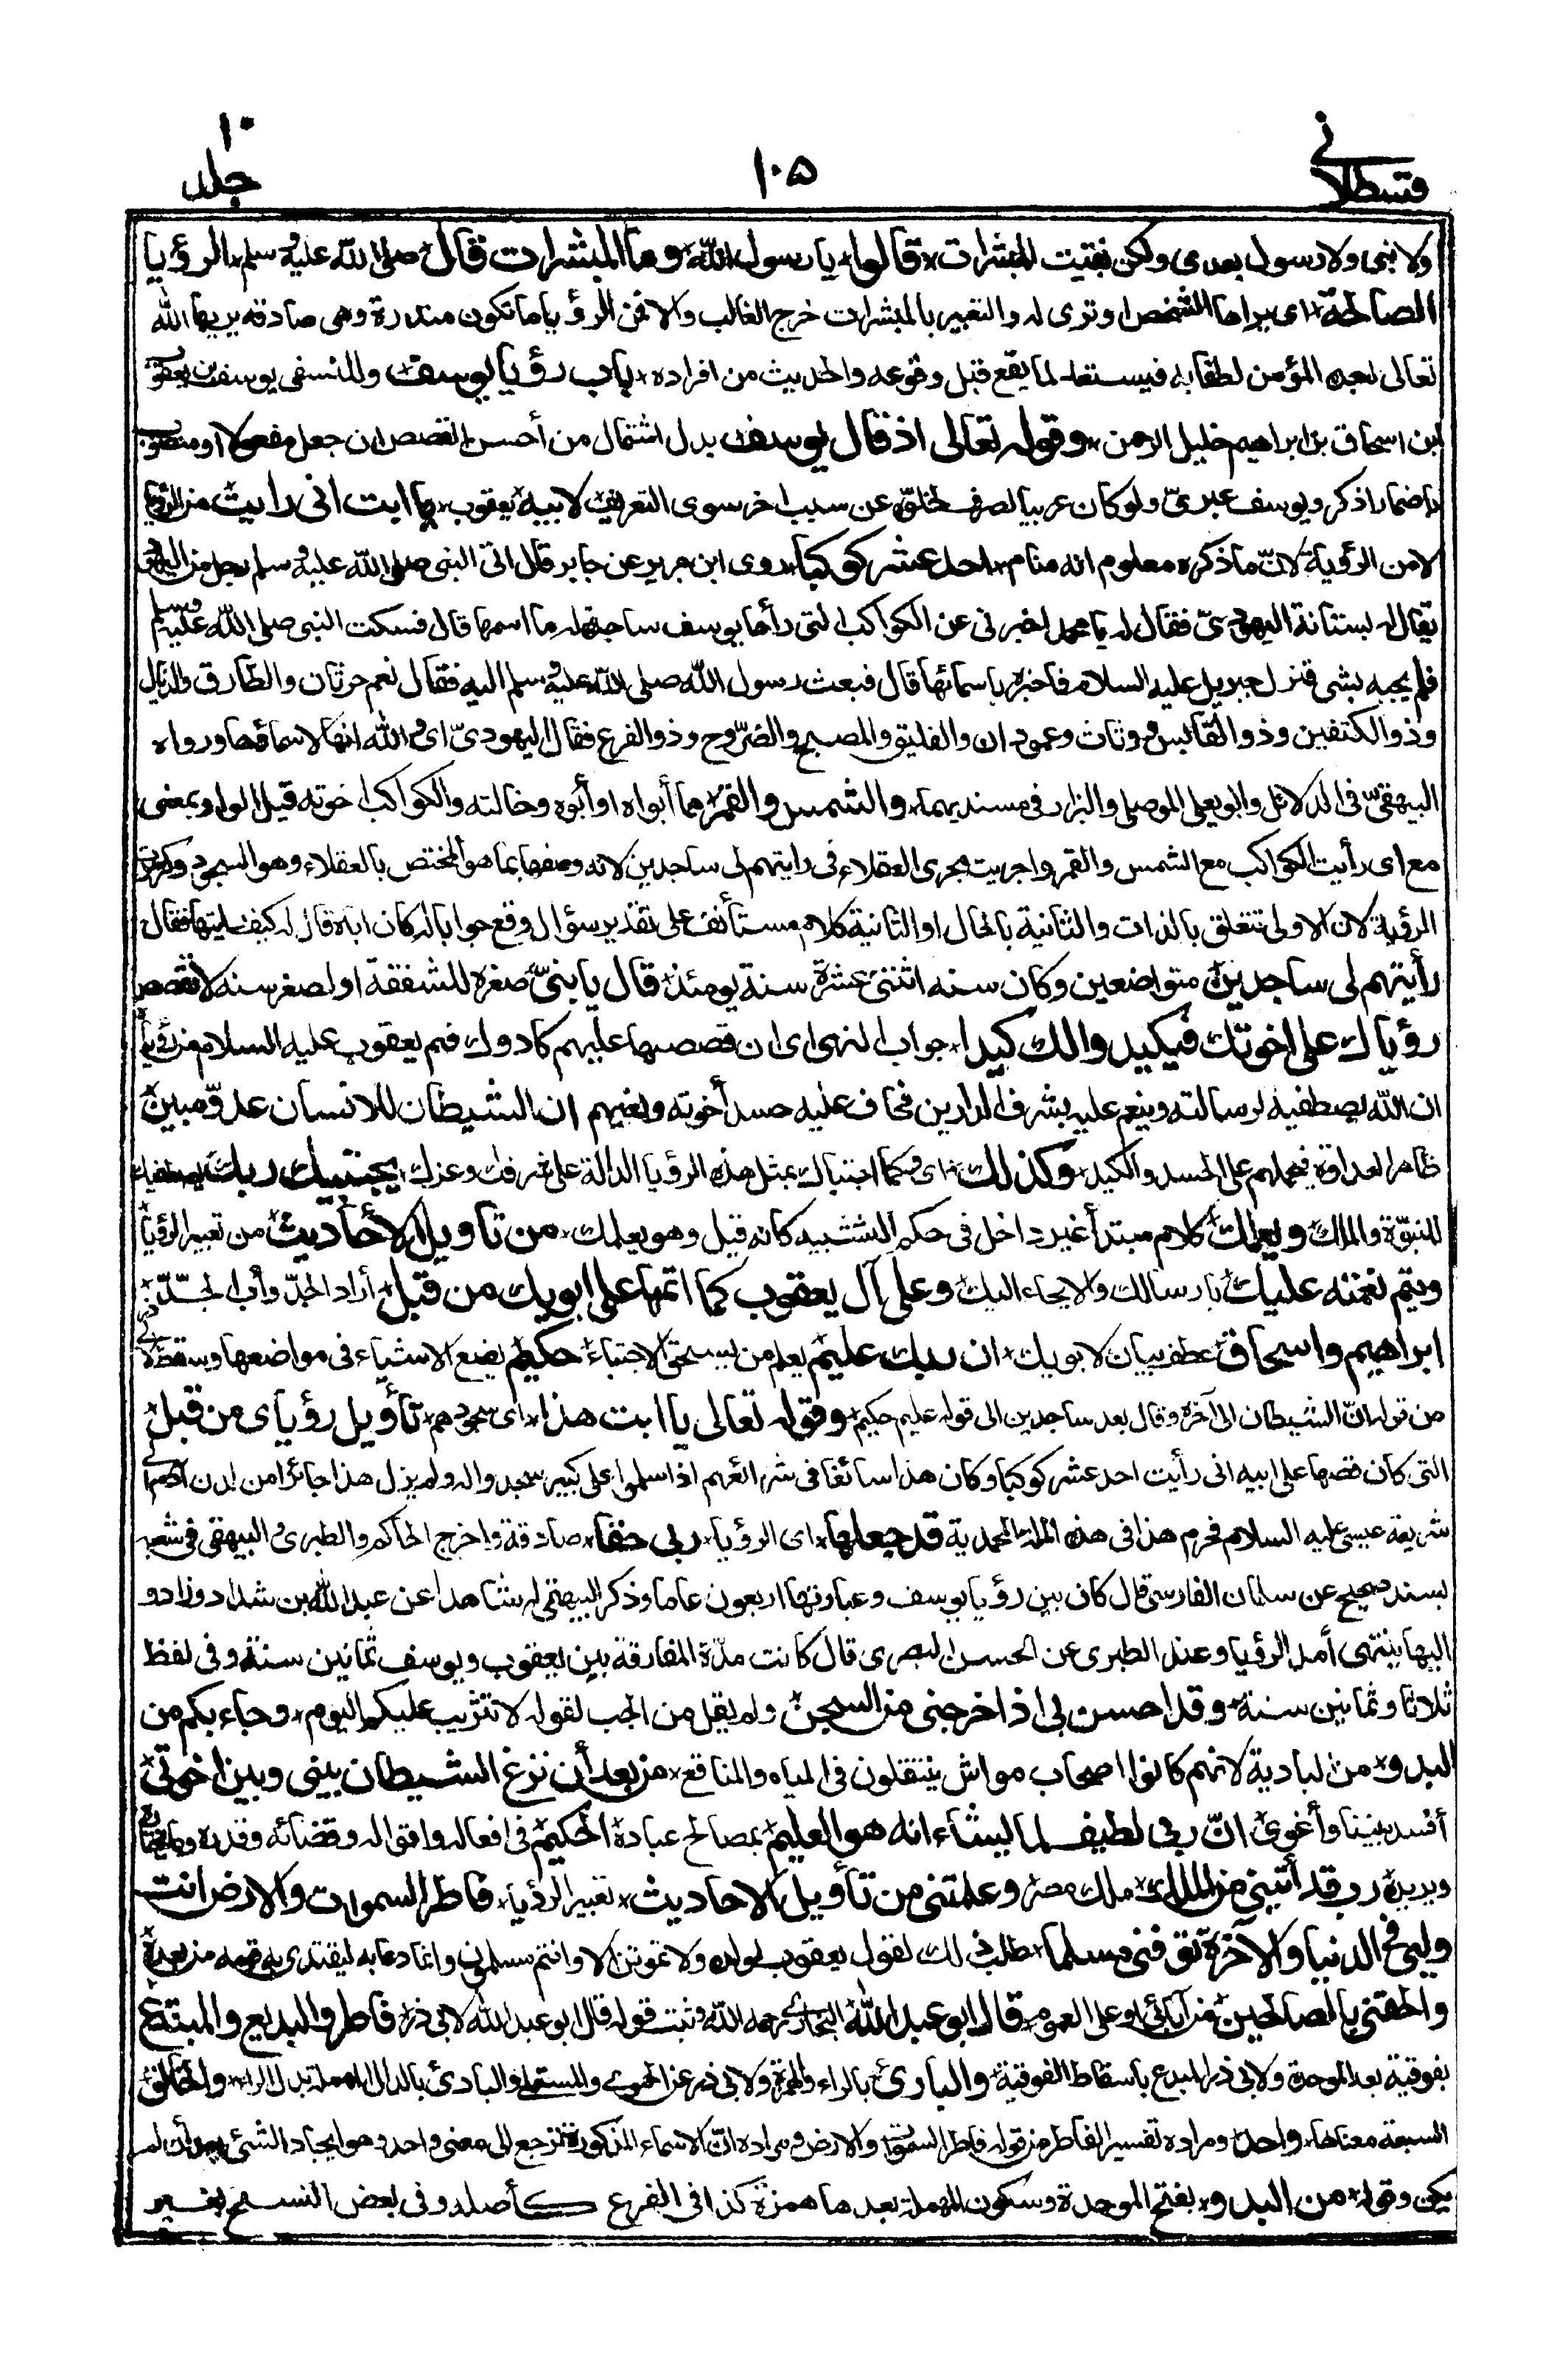 قسطلانی
١٠٥
جلد ١٠
ولا نبى ولا رسول بعدى ولكن بقيت المبشرات قالوا يا رسول الله وما المبشرات قال صلى الله عليه وسلم الرؤيا
الصالحة اى يراها الشخص او ترى له والتعبير بالمبشرات خرج الغالب والا فمن الرؤيا ما تكون منذرة وهى صادقة يريها الله
تعالى لعبده المؤمن لطفا به فيستعد لما يقع قبل وقوعه والحديث من افراده باب رؤيا يوسف وللنسفى يوسف بن يعقوب
ابن اسحاق بن ابراهيم خليل الرحمن وقوله تعالى اذ قال يوسف بدل اشتمال من أحسن القصص ان جعل مفعولا او منصوب
باضمار اذكر ويوسف عبرىّ ولو كان عربيا لصرف لخلوّه عن سبب اخر سوى التعريف لابيه يعقوب يا ابت انى رايت من الرؤيا
لا من الرؤية لانّ ما ذكره معلوم انه منام احد عشر كوكبا روى ابن جرير عن جابر قال اتى النبى صلى الله عليه وسلم رجل من اليهود
يقال له بستانة اليهودىّ فقال له يا محمد اخبرنى عن الكواكب التى رأها يوسف ساجدة له ما اسمها قال فسكت النبى صلى الله عليه وسلم
فلم يجبه بشى فنزل جبريل عليه السلام فاخبره باسمائها قال فبعث رسول الله صلى الله عليه وسلم اليه فقال نعم حرثان والطارق والذيال
وذو الكتفين وذو القابس ووثاب وعمودان والفليق والمصبح والضروح وذو الفرع فقال اليهودىّ اى والله انها لاسماؤها ورواه
البيهقىّ فى الدلائل وابو يعلى الموصلى والبزار فى مسنديهما والشمس والقمر هما أبواه او أبوه وخالته والكواكب اخوته قيل الواو بمعنى
مع اى رأيت الكواكب مع الشمس والقمر واجريت مجرى العقلاء فى رايتهم لى ساجدين لانه وصفها بما هو المختص بالعقلاء وهو السجود وكررت
الرؤية لان الاولى تتعلق بالذات والثانية بالحال او الثانية كلام مستأنف على تقدير سؤال وقع جوابا له كان اباه قال له كيف رأيتها فقال
رأيتهم لى ساجدين متواضعين وكان سنه اثنتى عشرة سنة يومئذ قال يا بنىّ صغره للشفقة او لصغر سنه لا تقصص
رؤياك على اخوتك فيكيدوا لك كيدا جواب النهى اى ان قصصتها عليهم كادوك فهم يعقوب عليه السلام من رؤياه
ان الله يصطفيه لرسالته وينعم عليه بشرف الدارين فخاف عليه حسد أخوته وبغيهم ان الشيطان للانسان عدوّ مبين
ظاهر العداوة فيحملهم على الحسد والكيد وكذلك اى وكما اجتباك بمثل هذه الرؤيا الدالة على شرفك وعزك يجتبيك ربك يصطفيك
للنبوّة والملك ويعلمك كلام مبتدأ غير داخل فى حكم التشبيه كانه قيل وهو يعلمك من تاويل الأحاديث من تعبير الرؤيا
ويتم نعمته عليك بارسالك والايحاء اليك وعلى آل يعقوب كما اتمها على ابويك من قبل أراد الجدّ وأب الجدّ
ابراهيم واسحاق عطف بيان لابويك ان ربك عليم يعلم من يستحق الاجتباء حكيم يضع الاشياء فى مواضعها وسقط
من قوله انّ الشيطان الى آخره وقال بعد ساجدين الى قوله عليم حكيم وقوله تعالى يا ابت هذا اى سجودهم تأويل رؤياى من قبل
التى كان قصها على ابيه انى رأيت احد عشر كوكبا وكان هذا سائغا فى شرائعهم اذا سلموا على كبير سجدوا له ولم يزل هذا جائزا من لدن آدم الى
شريعة عيسى عليه السلام فحرم هذا فى هذه الملة المحمدية قد جعلها اى الرؤيا ربى حقا صادقة واخرج الحاكم والطبرى والبيهقى فى شعبه
بسند صحيح عن سلمان الفارسى قال كان بين رؤيا يوسف وعبارتها اربعون عاما وذكر البيهقى له شاهدا عن عبد الله بن شداد وزاد و
اليها ينتهى أمد الرؤيا وعند الطبرى عن الحسن البصرى قال كانت مدّة المفارقة بين يعقوب ويوسف ثمانين سنة وفى لفظ
ثلاثا وثمانين سنة وقد احسن بى اذ اخرجنى من السجن ولم يقل من الجب لقوله لا تثريب عليكم اليوم وجاء بكم من
البدو من البادية لانهم كانوا اصحاب مواش ينتقلون فى المياه والمناقع من بعد أن نزغ الشيطان بينى وبين اخوتى
أفسد بيننا وأغوى انّ ربى لطيف لما يشاء انه هو العليم بمصالح عباده الحكيم فى افعاله واقواله وقضائه وقدره وما يختاره
ويريده رب قد أتيتنى من الملك ملك مصر وعلمتنى من تأويل الاحاديث تعبير الرؤيا فاطر السموات والارض انت
وليى فى الدنيا والآخرة توفنى مسلما طلب ذلك لقول يعقوب لولده ولا تموتنّ الا وانتم مسلمون وانما دعا به ليقتدى به قومه من بعده
والحقنى بالصالحين من آبائى او على العموم قال ابو عبد الله البخارى رحمه الله وثبت قوله قال ابو عبد الله لابى ذر فاطر والبديع والمبتدع
بفوقية بعد الموحدة ولابى ذر المبدع باسقاط الفوقية والبارئ بالراء والهمزة ولابى ذر عن الحموى والمستملى والبادئ بالدال المهملة بدل الراء والخالق
السبعة معناها واحد ومراده تفسير الفاطر من قوله فاطر السموات والارض ومراده انّ الاسماء المذكورة ترجع الى معنى واحد وهو ايجاد الشئ بعد أن لم
يكن وقوله من البدو بفتح الموحدة وسكون المهملة بعدها همزة كذا فى الفرع كأصله وفى بعض النسخ بغير